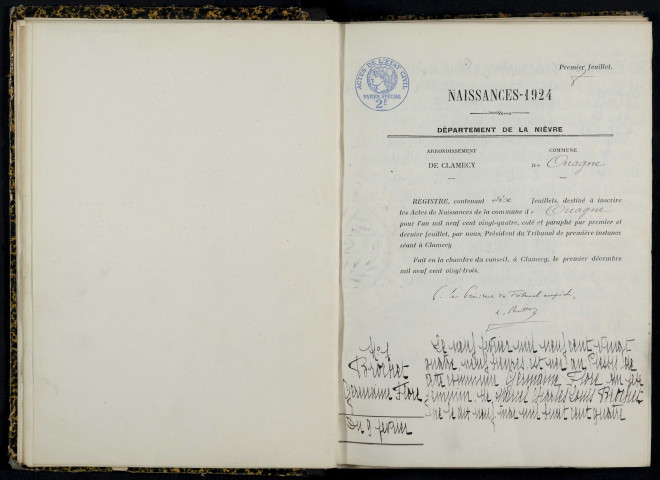 Premier feuillet.
ACTES DE L'ÉTAT CIVIL
PAPIER SPÉCIAL
2F
NAISSANCES-1924
DÉPARTEMENT DE LA NIÈVRE
ARRONDISSEMENT
DE CLAMECY
COMMUNE
DE Ouagne
REGISTRE, contenant dix feuillets, destiné à inscrire
les Actes de Naissances de la commune d'Ouagne
pour l'an mil neuf cent vingt-quatre, coté et paraphé par premier et
dernier feuillet, par nous, Président du Tribunal de première instance
séant à Clamecy
Fait en la chambre du conseil, à Clamecy, le premier décembre
mil neuf cent vingt-trois.
P. le Président du Tribunal empêché,
Germaine Flore
Du 9 février
Le neuf février mil neuf cent vingt
quatre neuf heures est née au
cette commune Germaine Flore du sexe
féminin de Marcel Charles Louis
né le dix neuf mai mil huit cent quatre